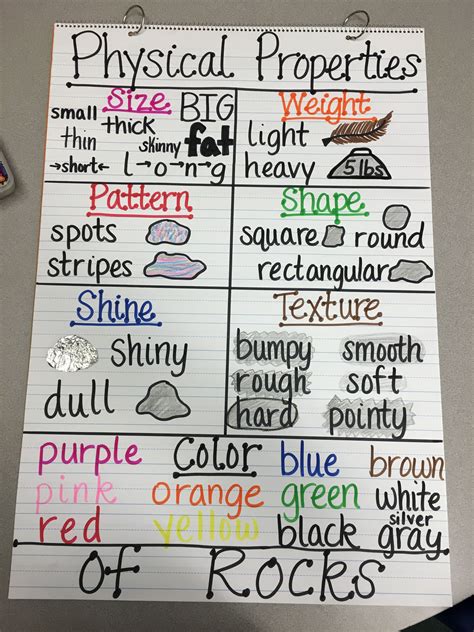 Physical Properties
Size
small
BIG
thick
thin
skinny
fat
→short←
l→o→n→g
Weight
light
heavy
5 lbs
Pattern
spots
stripes
Shape
square
round
rectangular
Shine
shiny
dull
Texture
bumpy
smooth
rough
soft
hard
pointy
purple
Color
blue
brown
pink
orange
green
white
red
yellow
black
silver
gray
Of Rocks